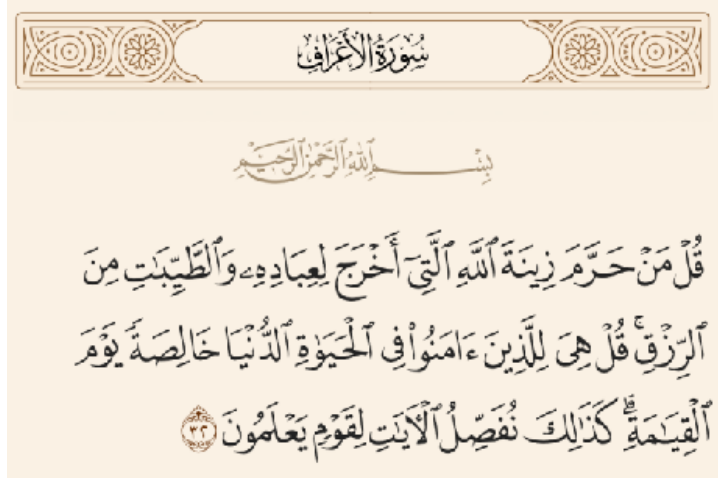 سُورَةُ الأَعۡرَافِ
بِسۡمِ ٱللَّهِ ٱلرَّحۡمَٰنِ ٱلرَّحِيمِ
قُلۡ مَنۡ حَرَّمَ زِينَةَ ٱللَّهِ ٱلَّتِيٓ أَخۡرَجَ لِعِبَادِهِۦ وَٱلطَّيِّبَٰتِ مِنَ
ٱلرِّزۡقِۚ قُلۡ هِيَ لِلَّذِينَ ءَامَنُواْ فِي ٱلۡحَيَوٰةِ ٱلدُّنۡيَا خَالِصَةٗ يَوۡمَ
ٱلۡقِيَٰمَةِۗ كَذَٰلِكَ نُفَصِّلُ ٱلۡأٓيَٰتِ لِقَوۡمٖ يَعۡلَمُونَ ٣٢